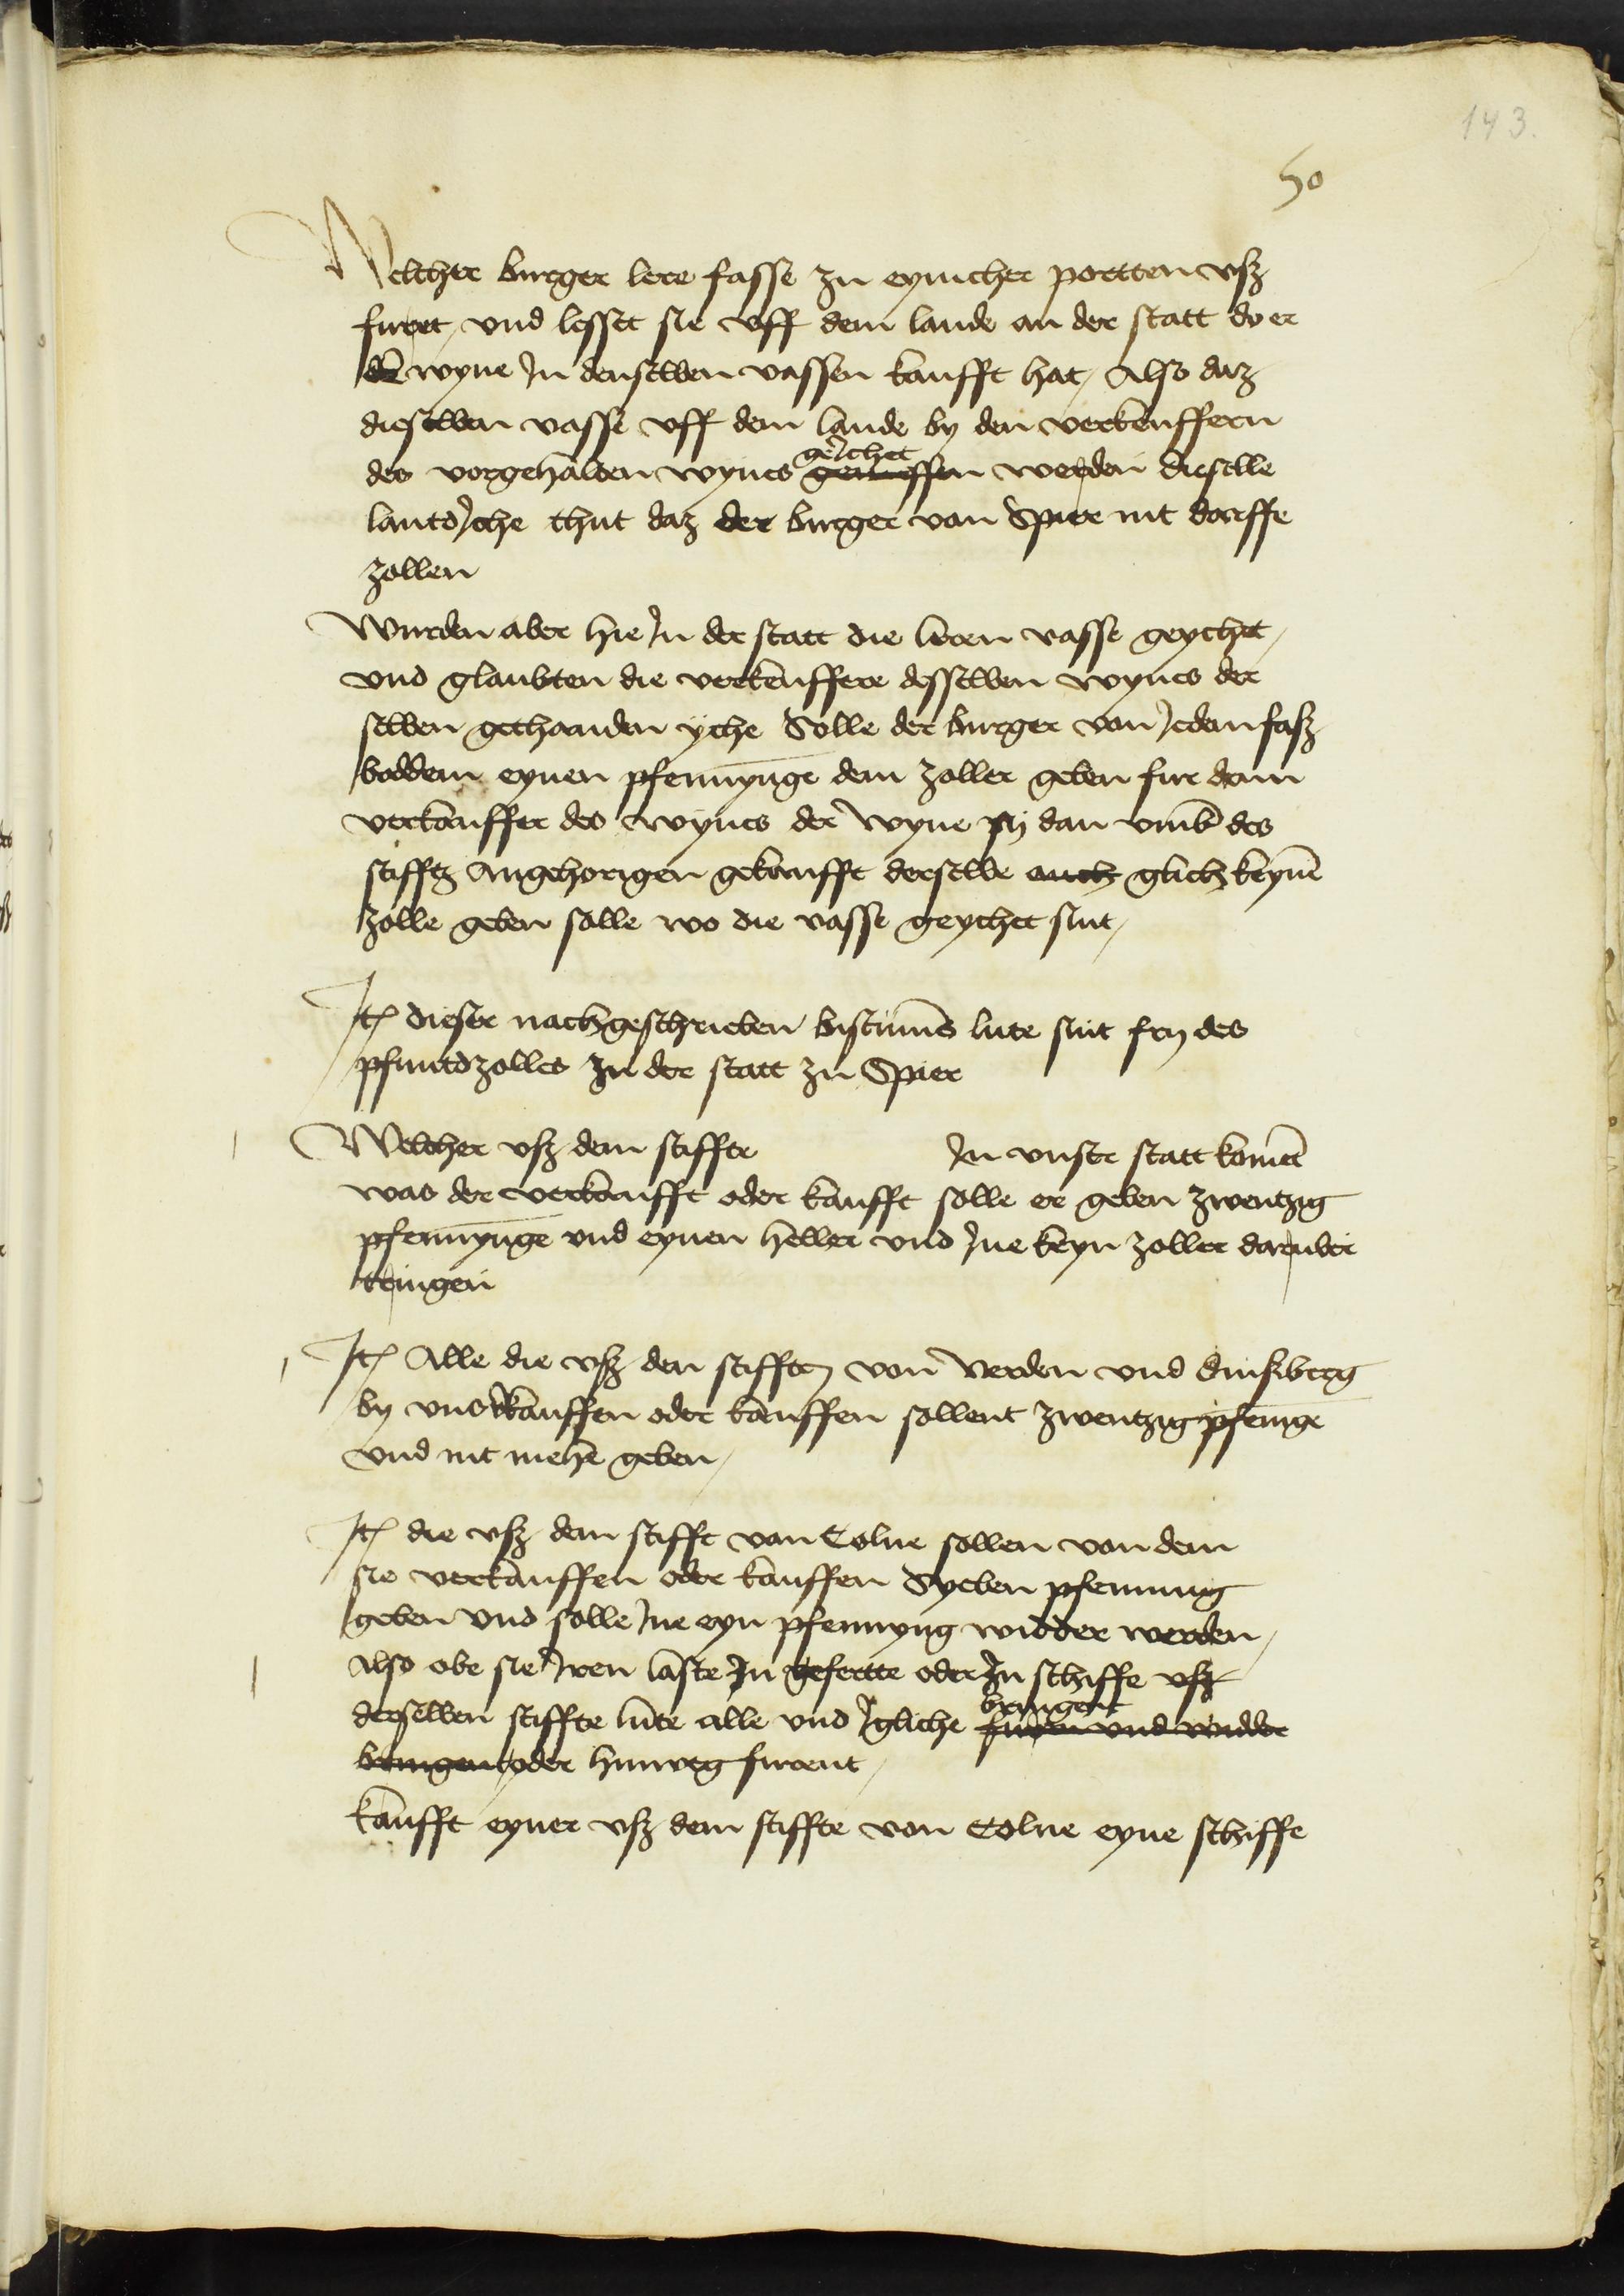 143.
50
Welcher burger lere fasse zu eynicher portten vsz
furet, vnd lesset sie vff dem lande an der statt do er
den wyne Jn denselben vassen kaufft hat, Also daz
dieselben vasse vff dem lande by den verkeuffern
geichet
des vorgehalden wynes gemessen werden dieselbe
lantdyche thut daz der burger von Spier nit dorffe
zollen
Wurden aber hie Jn der statt die leren vasse geychet,
vnd glaubten die verkeuffere desselben wynes der
selben gethanden yche Solle der burger von Jedem fasz
boddem eynen pfennynge dem zoller geben fur dem
verkauffer des wynes der wyne sy dan vmb des
stifftz Angehorigen gekaufft derselbe auch glich keyne
zolle geben solle wo die vasse geychet sint,
Jt dieser nachgeschrieben bistums lute sint fry des
pfuntdzolles Jn der statt zu Spier
Welcher vsz dem stiffte Jn vnser statt komet
was der verkaufft oder kaufft solle er geben zwentzig
pfennynge vnd eynen heller vnd Jne keyn zoller daruber
tringen
Jt Alle die vsz den stifften von Verden vnd
by vns kauffen oder kauffen sollent zwentzig pfenige
vnd nit mehe geben,
Jt die vsz dem stifft von Colne sollen von dem
sie verkauffen oder kauffen Syeben pfennung
geben vnd solle Jne eyn pfennyng widder werden,
Also obe sie Jren laste Jn gefertte oder Jn schiffe vsz
bringent
derselben stiffte lute alle vnd Jgliche furen vnd widder
bringent oder hinweg furent,
kaufft eyner vsz dem stiffte von Colne eyne schiffe